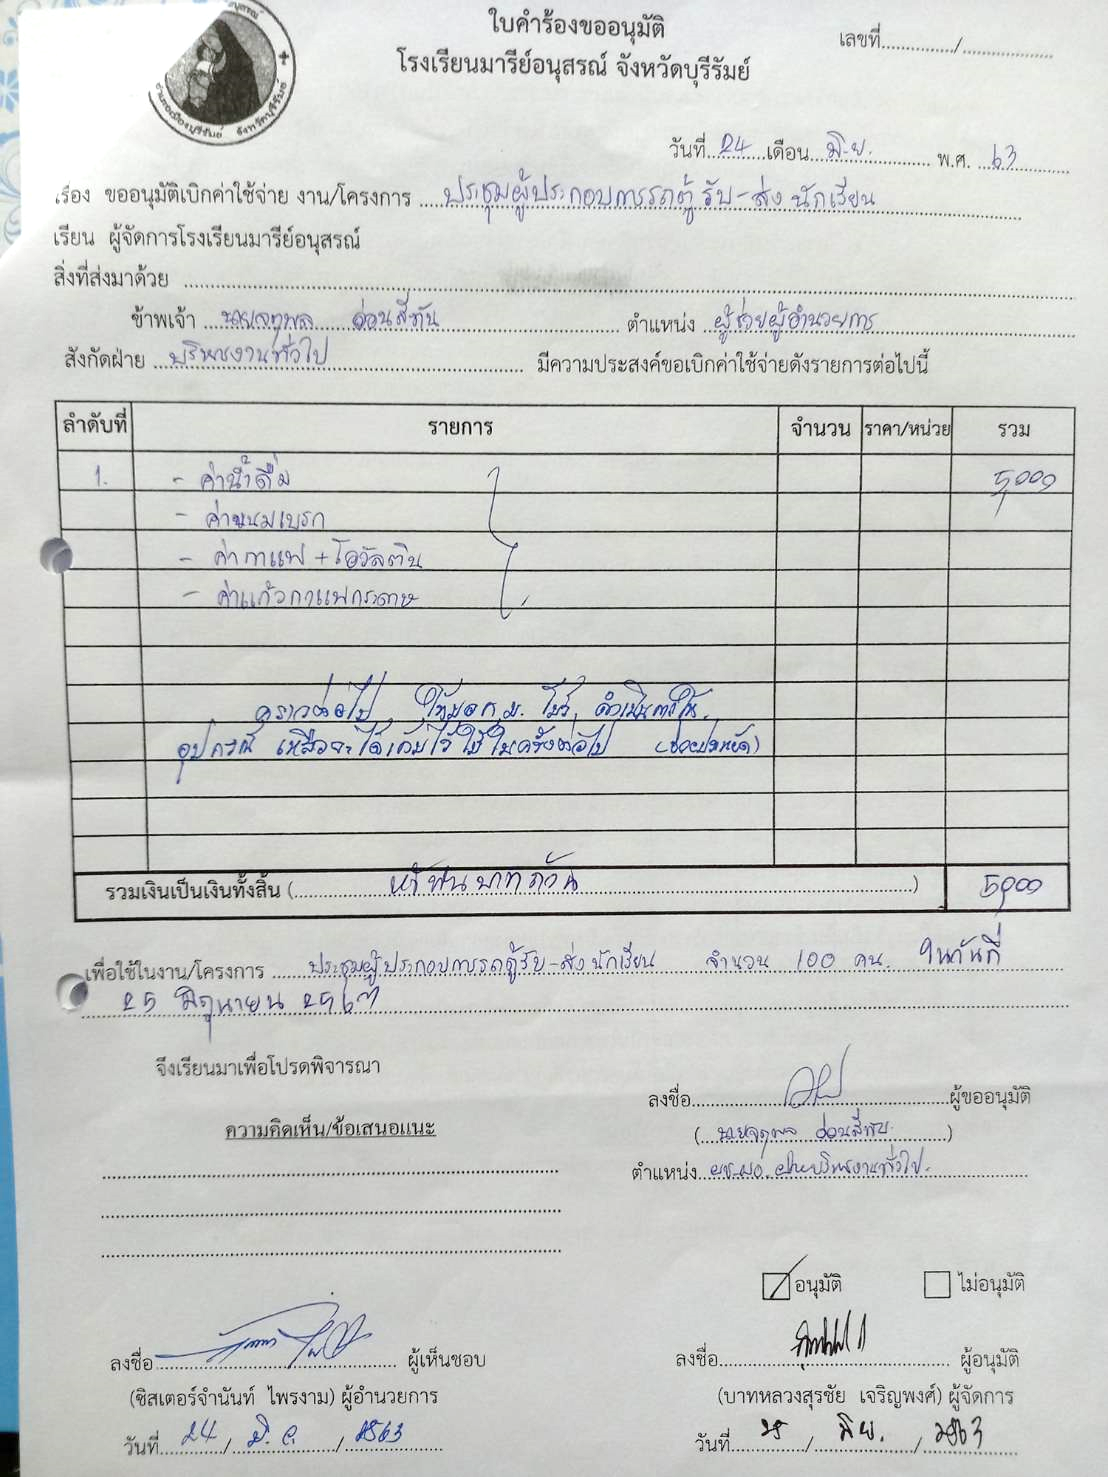 ใบคำร้องขออนุมัติ
โรงเรียนมารีย์อนุสรณ์ จังหวัดบุรีรัมย์
เลขที่............../..................
อำเภอเมืองบุรีรัมย์ จังหวัดบุรีรัมย์
วันที่ 24 เดือน มิ.ย. พ.ศ. 63
เรื่อง ขออนุมัติเบิกค่าใช้จ่าย งาน/โครงการ ประชุมผู้ประกอบการรถตู้ รับ-ส่ง นักเรียน
เรียน ผู้จัดการโรงเรียนมารีย์อนุสรณ์
สิ่งที่ส่งมาด้วย
ข้าพเจ้า นายจตุพล อ่อนสีทัน ตำแหน่ง ผู้ช่วยผู้อำนวยการ
สังกัดฝ่าย บริหารงานทั่วไป มีความประสงค์ขอเบิกค่าใช้จ่ายดังรายการต่อไปนี้
ลำดับที่ รายการ จำนวน ราคา/หน่วย รวม
1. - ค่าน้ำดื่ม 5,000
- ค่าขนมเบรก
- ค่ากาแฟ + โอวัลติน
- ค่าแก้วกาแฟกระดาษ
คราวต่อไป ให้ ดำเนินการให้
อุปกรณ์ เหลือจะได้เก็บไว้ใช้ในครั้งต่อไป (ช่วยประหยัด)
รวมเงินเป็นเงินทั้งสิ้น (ห้าพันบาทถ้วน) 5,000
เพื่อใช้ในงาน/โครงการ ประชุมผู้ประกอบการรถตู้รับ-ส่งนักเรียน จำนวน 100 คน. ในวันที่
25 มิถุนายน 2563
จึงเรียนมาเพื่อโปรดพิจารณา
ลงชื่อ ผู้ขออนุมัติ
ความคิดเห็น/ข้อเสนอแนะ
(นายจตุพล อ่อนสีทัน)
ตำแหน่ง ผช.ผอ.ฝ่ายบริหารงานทั่วไป.
อนุมัติ ไม่อนุมัติ
ลงชื่อ ผู้เห็นชอบ
ลงชื่อ ผู้อนุมัติ
(ซิสเตอร์จำนันท์ ไพรงาม) ผู้อำนวยการ
(บาทหลวงสุรชัย เจริญพงศ์) ผู้จัดการ
วันที่ 24 / มิ.ย. / 2563
วันที่ 25 / มิย. / 2563